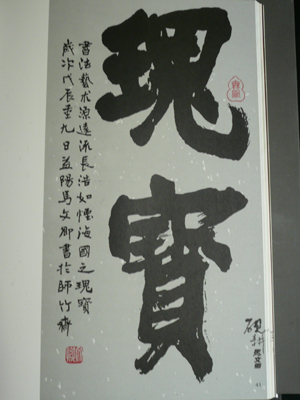 瑰寶
書法藝術源遠流長浩如煙海國之瑰寶
歲次戊辰重九日益陽馬文卿書於師竹齋
41